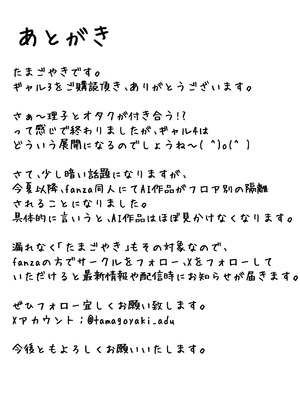 あとがき
たまごやきです。
ギャル3をご購読頂き、ありがとうございます。
さぁ～理子とオタクが付き合う!?
って感じで終わりましたが、ギャル4は
どういう展開になるのでしょうね～( ^)o(^ )
さて、少し暗い話題になりますが、
今夏以降、fanza同人にてAI作品がフロア別の隔離
されることになりました。
具体的に言いうと、AI作品はほぼ見かけなくなります。
漏れなく「たまごやき」もその対象なので、
fanzaの方でサークルをフォロー、Xをフォローして
いただけると最新情報や配信時にお知らせが届きます。
ぜひフォロー宜しくお願い致します。
Xアカウント；@tamagoyaki_adu
今後ともよろしくお願いいたします。